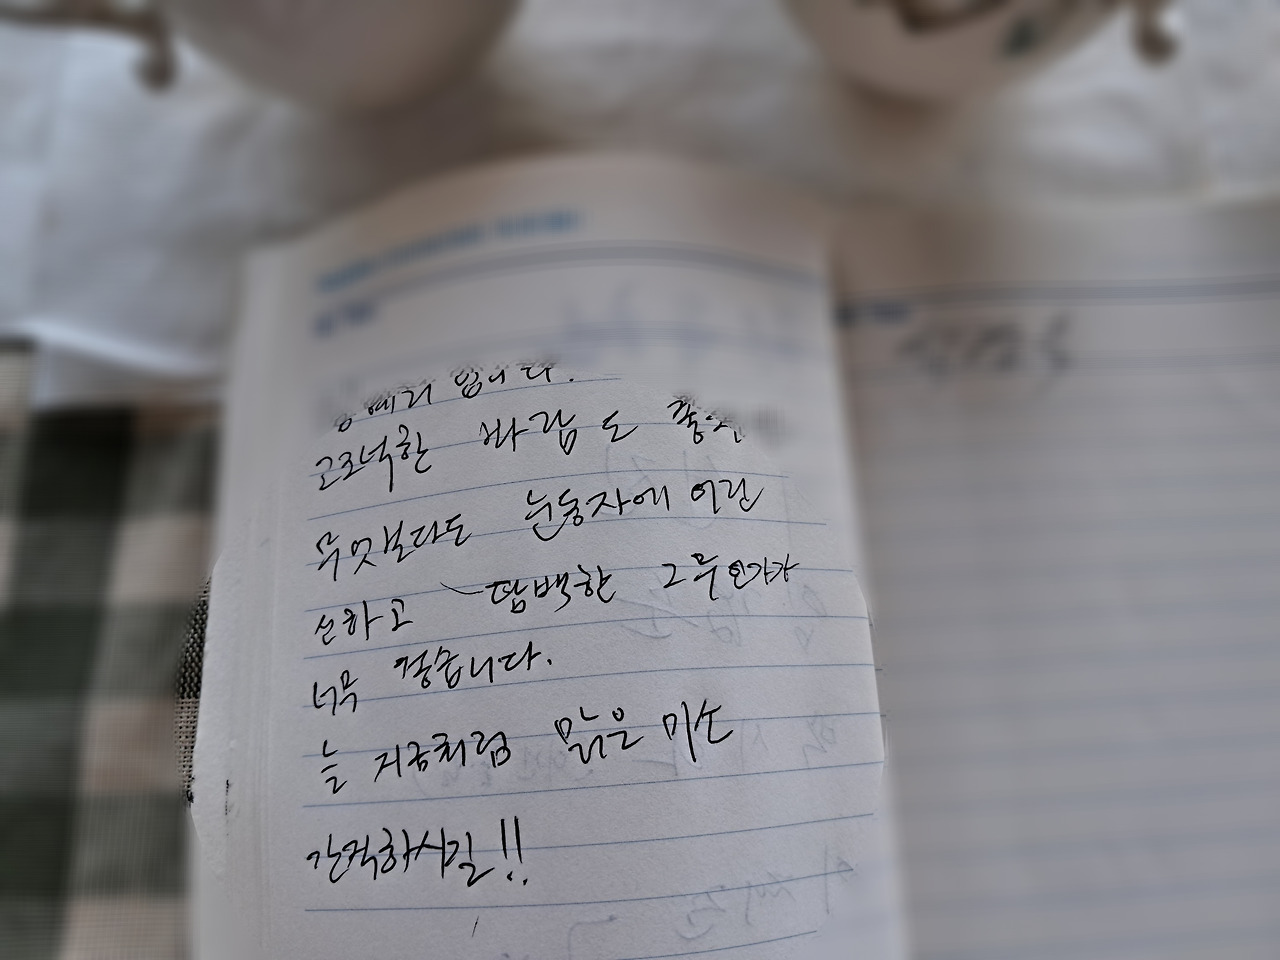 입니다.
고즈넉한 바람도
무엇보다도 눈동자에 어린
선하고 담백한 그 무언가가
너무 좋습니다.
늘 지금처럼 맑은 미소
간직하시길!!